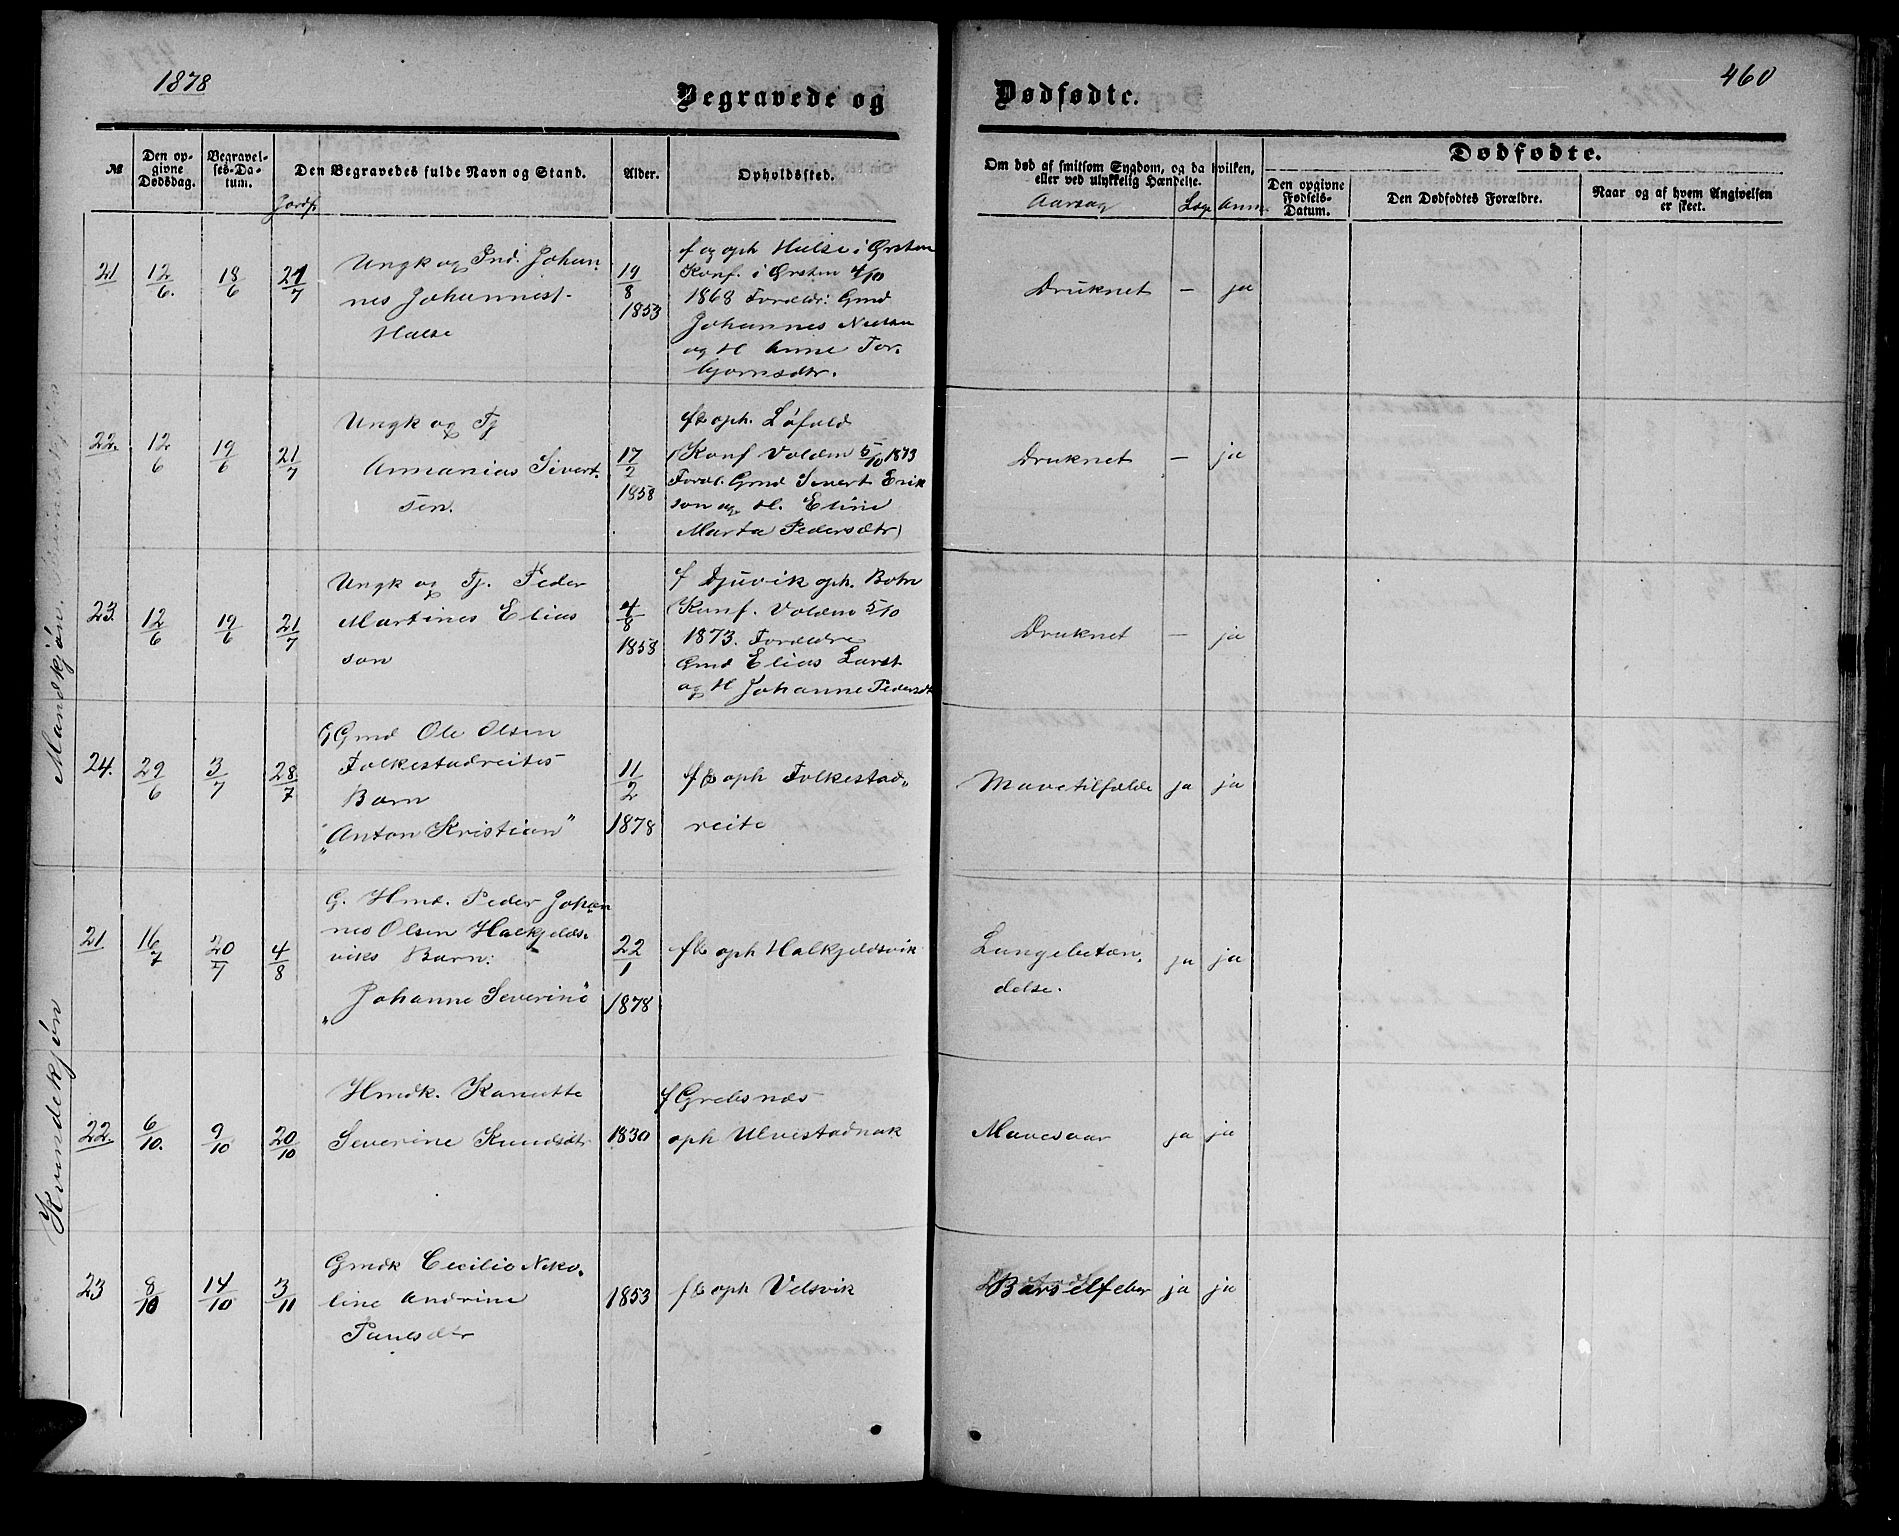 1878
Begravede og
Dødfødte.
460
№
Den op-
givne
Dødsdag.
Begravel-
ses-Da-
tum.
Jordf
Den Begravedes fulde Navn og Stand.
Alder.
Opholdssted.
Om død af smitsom Sygdom, og da hvilken,
eller ved ulykkelig Hændelse.
Aarsag
Læge
Anm
Dødfødte.
Den opgivne
Fødsels-
Datum.
Den Dødfødtes Forældre.
Naar og af hvem Angivelsen
er skeet.
Mandkjøn.
21
12/6.
18/6
21/7
Ungk og Ind. Johan-
nes Johannest.
Halse
19/8
1853
f og oph Halse i Ørsten
Konf. i Ørsten 4/10
1868 Forældr: Gmd
Johannes Nielsen
og H Anne Tor-
bjørnsdtr.
Druknet
—
ja
22.
12/6
19/6
21/7
Ungk og Tj
Annanias Sivert-
sen.
17/2
1858
f & oph. Løfald
(Konf Volden 5/10 1873
Foræl. Gmd Sivert Erik
son og H. Eline
Marta Pedersdtr)
Druknet
—
ja
23
12/6
19/6
21/7
Ungk og Tj. Peder
Martines Elias
son
4/8
1858
f Djuvik oph. Botn
(Konf. Volden 5/10
1873. Forældre
Gmd Elias Larst
og H Johanne Pedersdt
Druknet
—
ja
24.
29/6
3/7
28/7
G Gmd Ole Olsen
Folkestadreites
Barn
"Anton Kristian"
11/2
1878
f & oph Folkestad-
reite
Mavetilfælde
ja
ja
Kvindekjøn
21
16/7
20/7
4/8
G. Hmd. Peder Johan
nes Olsen Halkjelds-
viks Barn:
"Johanne Severine"
22/1
1878
f & oph Halkjeldsvik
Lungebetæn-
delse.
ja
ja
22.
6/10.
9/10
20/10
Hmdk. Kanutte
Severine Knudsdtr
1830
f Grebsnæs
oph Ulvestadbak
Mavesaar
ja
ja
23
8/10
14/10
3/11
Gmdk Cecilie Niko-
line Andrine
Paulsdtr
1853
f & oph Velsvik
Barselfeber
ja
ja